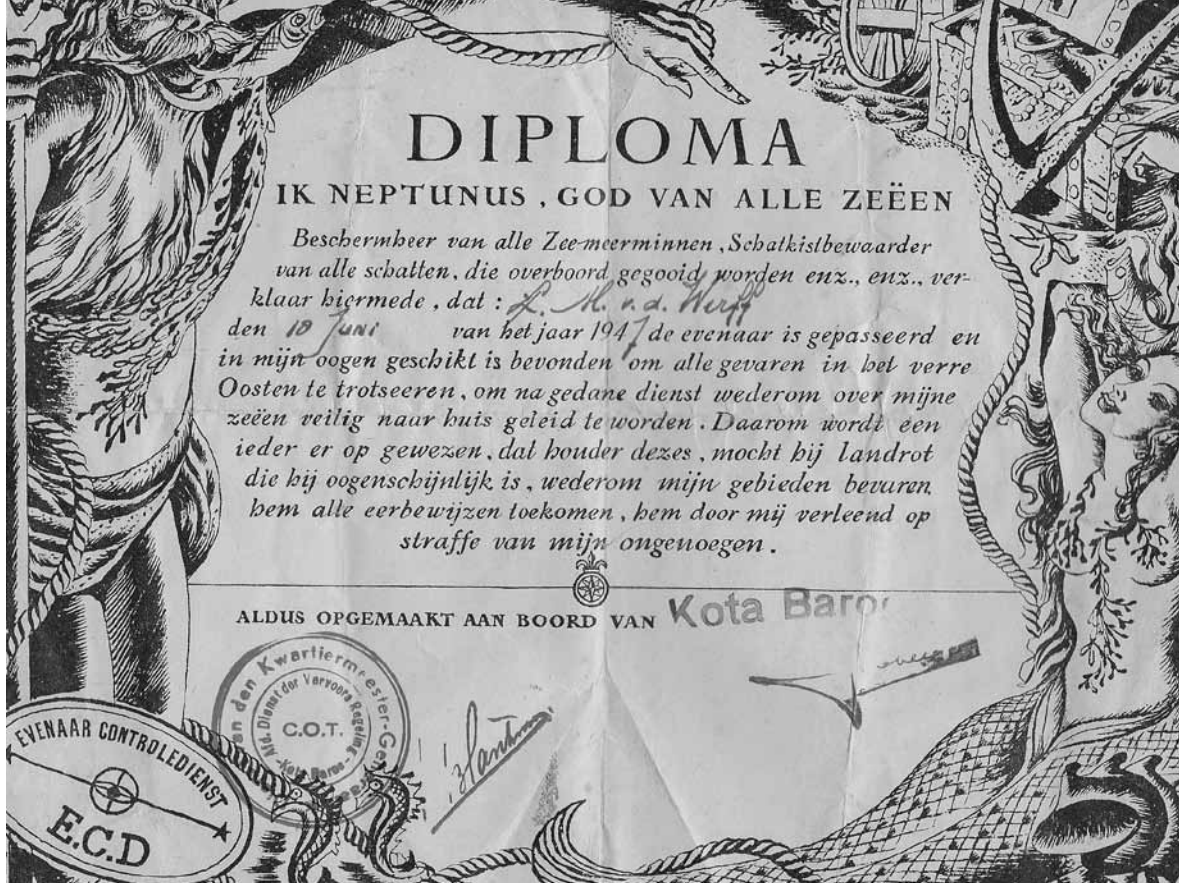 DIPLOMA
IK NEPTUNUS, GOD VAN ALLE ZEËEN
Beschermheer van alle Zee-meerminnen, Schatkistbewaarder
van alle schatten, die overboord gegooid worden enz., enz., ver-
klaar hiermede, dat : L. M. v.d. Werff
den 10 Juni van het jaar 1947 de evenaar is gepasseerd en
in mijn oogen geschikt is bevonden om alle gevaren in het verre
Oosten te trotseeren, om na gedane dienst wederom over mijne
zeëen veilig naar huis geleid te worden. Daarom wordt een
ieder er op gewezen, dat houder dezes, mocht hij landrot
die hij oogenschijnlijk is, wederom mijn gebieden bevaren,
hem alle eerbewijzen toekomen, hem door mij verleend op
straffe van mijn ongenoegen.
ALDUS OPGEMAAKT AAN BOORD VAN Kota Baroe
van den Kwartiermeester-Gen
Afd. Dienst der Vervoers Regeling
C.O.T.
-Kota Baroe-
EVENAAR CONTROLEDIENST
E.C.D